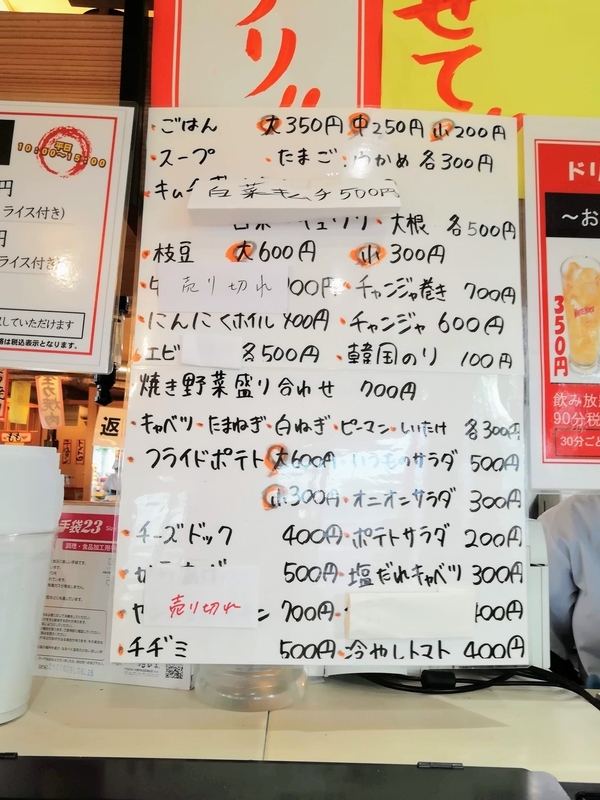 せて
ごはん 大350円 中250円 小200円
スープ ・たまご・わかめ 各300円
キム 白菜キムチ500円
キュウリ・大根 各500円
枝豆 大600円 小300円
売り切れ 00円・チャンジャ巻き 700円
・にんにくホイル 400円・チャンジャ 600円
エビ 各500円・韓国のり 100円
焼き野菜盛り合わせ 700円
・キャベツ・たまねぎ・白ねぎ・ピーマン・しいたけ 各300円
フライドポテト 大600円・いつものサラダ 500円
小300円・オニオンサラダ 300円
・チーズドック 400円・ポテトサラダ 200円
500円・塩だれキャベツ 300円
売り切れ ン 700円・ 400円
・チヂミ 500円・冷やしトマト 400円
平日
10:00〜15:00
円
ライス付き)
円
ライス付き)
していただけます
は税込表示となります。
返
手袋23
調理・食品加工用
ドリ
〜お
350円
飲み放
90分税
30分ごと